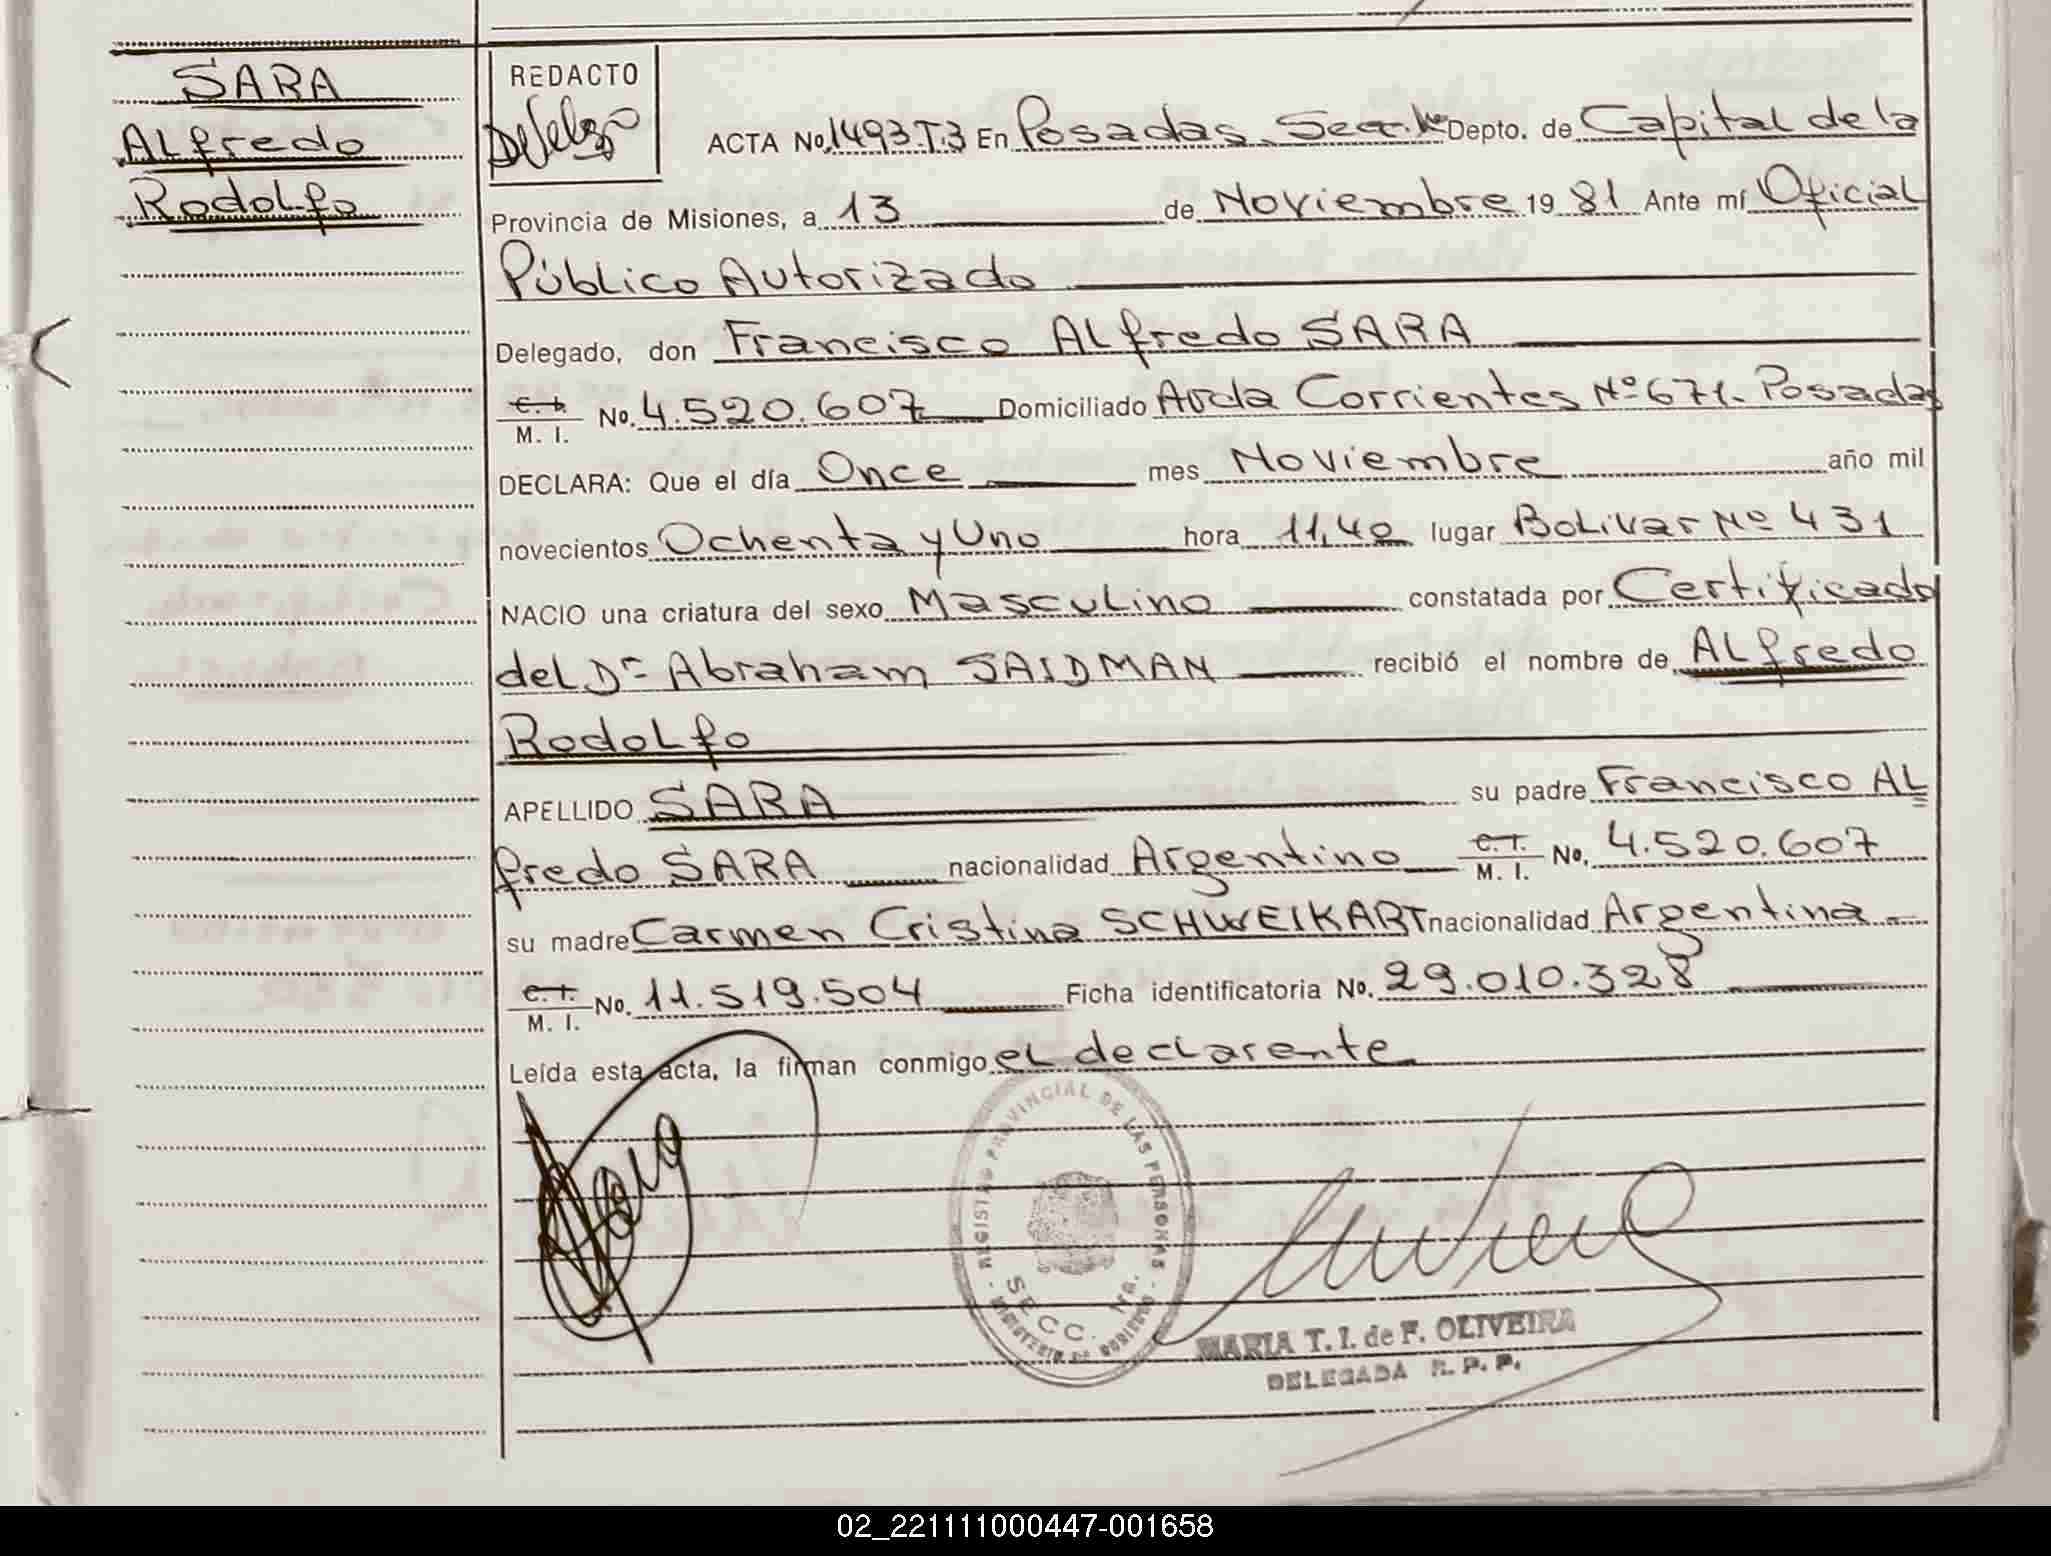 SARA
Alfredo
Rodolfo
REDACTO
ACTA No. 1493.T.3 En Posadas, Secc. 1ra Depto. de Capital de la
Provincia de Misiones, a 13 de Noviembre 19 81 Ante mí Oficial
Público Autorizado
Delegado, don Francisco Alfredo SARA
C. I. M. I. No. 4.520.607 Domiciliado Avda Corrientes Nº 671. Posadas
DECLARA: Que el día Once mes Noviembre año mil
novecientos Ochenta y Uno hora 11,40 lugar Bolivar Nº 431
NACIO una criatura del sexo Masculino constatada por Certificado
del Dr. Abraham SAIDMAN recibió el nombre de Alfredo
Rodolfo
APELLIDO SARA su padre Francisco Al
fredo SARA nacionalidad Argentino C. I. M. I. No. 4.520.607
su madre Carmen Cristina SCHWEIKART nacionalidad Argentina
C. I. M. I. No. 11.519.504 Ficha identificatoria No. 29.010.328
Leída esta acta, la firman conmigo el declarente
REGISTRO PROVINCIAL DE LAS PERSONAS
SECC. 1ra.
MINISTERIO DE GOBIERNO
MARIA T. I. de F. OLIVEIRA
DELEGADA R. P. P.
02_221111000447-001658